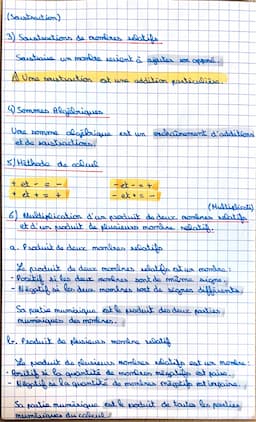 (Soustraction)
3) Soustractions de nombres relatifs
Soustraire un nombre revient à ajouter son opposé.
⚠ Une soustraction est une addition particulière.
4) Sommes Algébriques
Une somme algébrique est un enchaînement d'additions
et de soustractions.
5) Méthode de calcul
+ et - = - - et - = +
+ et + = + - et + = -
(Multiplicati)
6) Multiplication d'un produit de deux nombres relatifs
et d'un produit de plusieurs nombres relatifs.
a. Produit de deux nombres relatifs
Le produit de deux nombres relatifs est un nombre :
- Positif si les deux nombres sont de même signe.
- Négatif si les deux nombres sont de signes différents
Sa partie numérique est le produit des deux parties
numériques des nombres.
b. Produit de plusieurs nombres relatif
Le produit de plusieurs nombres relatifs est un nombre :
- Positif si la quantité de nombres négatifs est paire.
- Négatif si la quantité de nombres négatifs est impaire.
Sa partie numérique est le produit de toutes les parties
numériques du calcul.